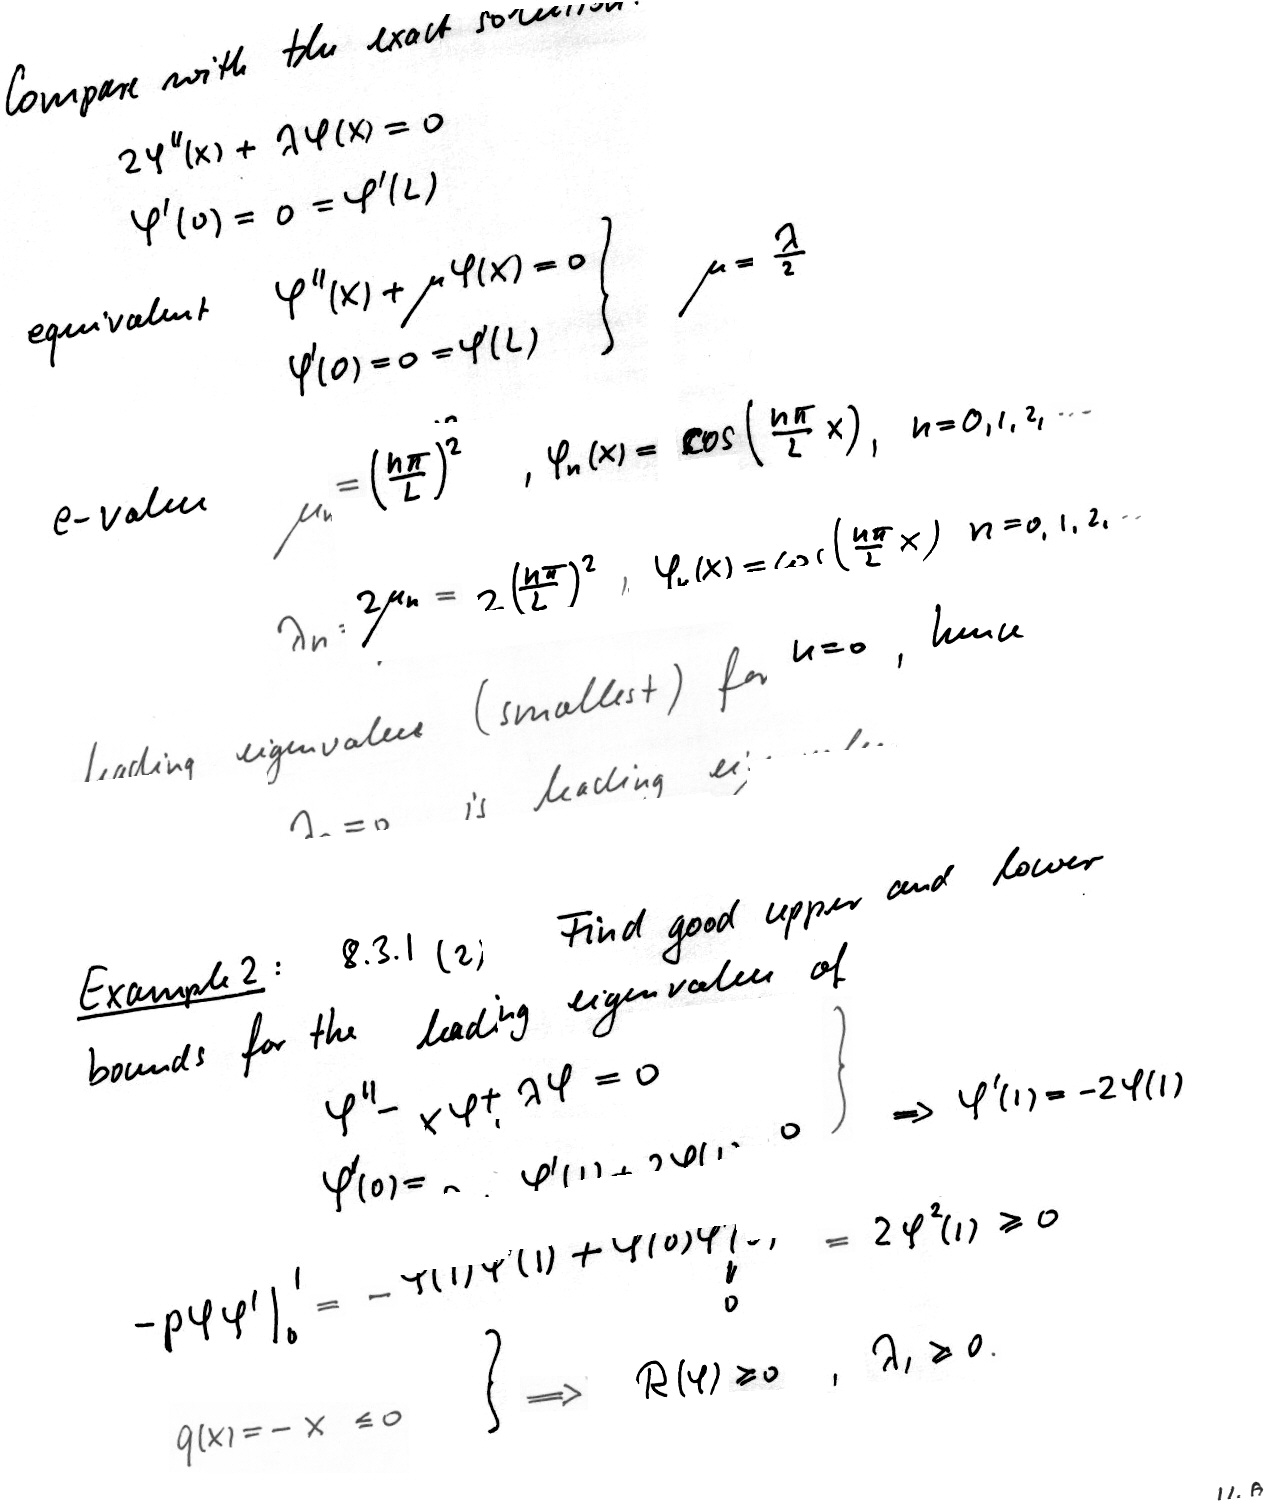 Compare with the exact
2φ"(x) + λφ(x) = 0
φ'(0) = 0 = φ'(L)
equivalent φ"(x) + μφ(x) = 0 } μ = λ/2
φ'(0) = 0 = φ'(L)
e-value μn = (nπ/L)², φn(x) = cos(nπ/L x), n=0,1,2, ...
λn = 2μn = 2(nπ/L)², φn(x) = cos(nπ/L x) n=0,1,2, ..
leading eigenvalue (smallest) for n=0, hence
= 0 is leading
Example 2: 8.3.1 (2) Find good upper and lower
bounds for the leading eigenvalue of
φ" - xφ + λφ = 0 } ⇒ φ'(1) = -2φ(1)
φ'(0) =
-pφφ'|₀¹ = -φ(1)φ'(1) + φ(0) = 2φ²(1) ≥ 0
0
q(x) = -x ≤ 0 } ⇒ R(φ) ≥ 0, λ₁ ≥ 0.